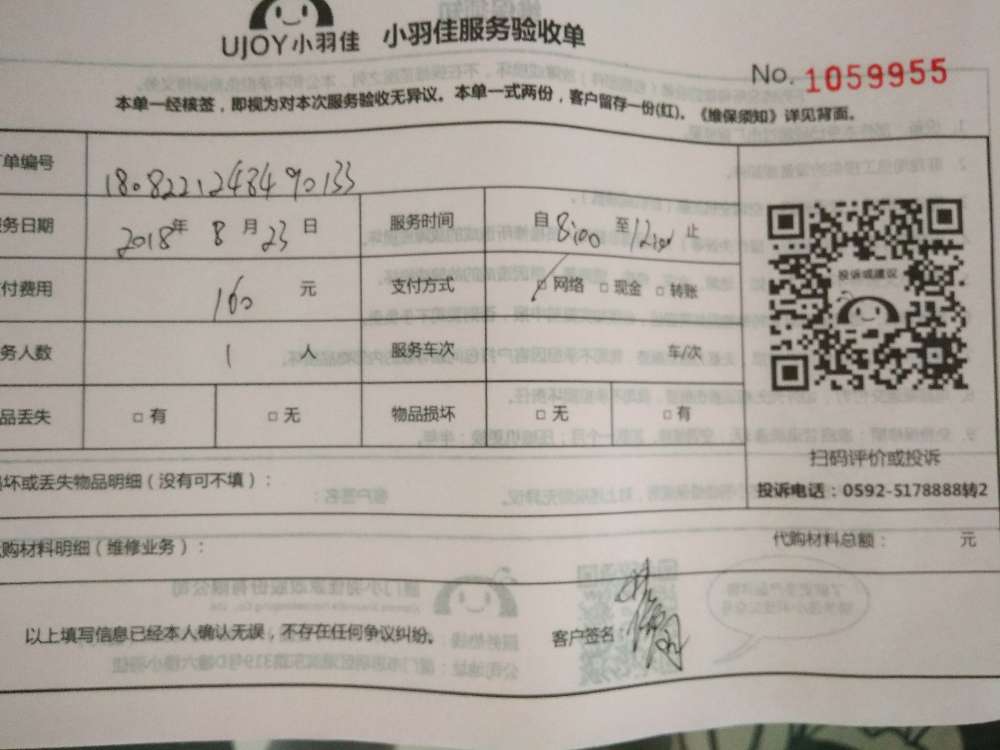 UJOY小羽佳 小羽佳服务验收单
No. 1059955
本单一经核签，即视为对本次服务验收无异议。本单一式两份，客户留存一份(红)。《维保须知》详见背面。
单编号 1808221248490133
务日期 2018年 8 月 23 日 服务时间 自 8:00 至 12:00 止
付费用 160 元 支付方式 □ 网络 □ 现金 □ 转账
务人数 1 人 服务车次 车/次
品丢失 □ 有 □ 无 物品损坏 □ 无 □ 有
投诉或建议
扫码评价或投诉
投诉电话：0592-5178888转2
坏或丢失物品明细（没有可不填）：
购材料明细（维修业务）： 代购材料总额： 元
以上填写信息已经本人确认无误，不存在任何争议纠纷。 客户签名：